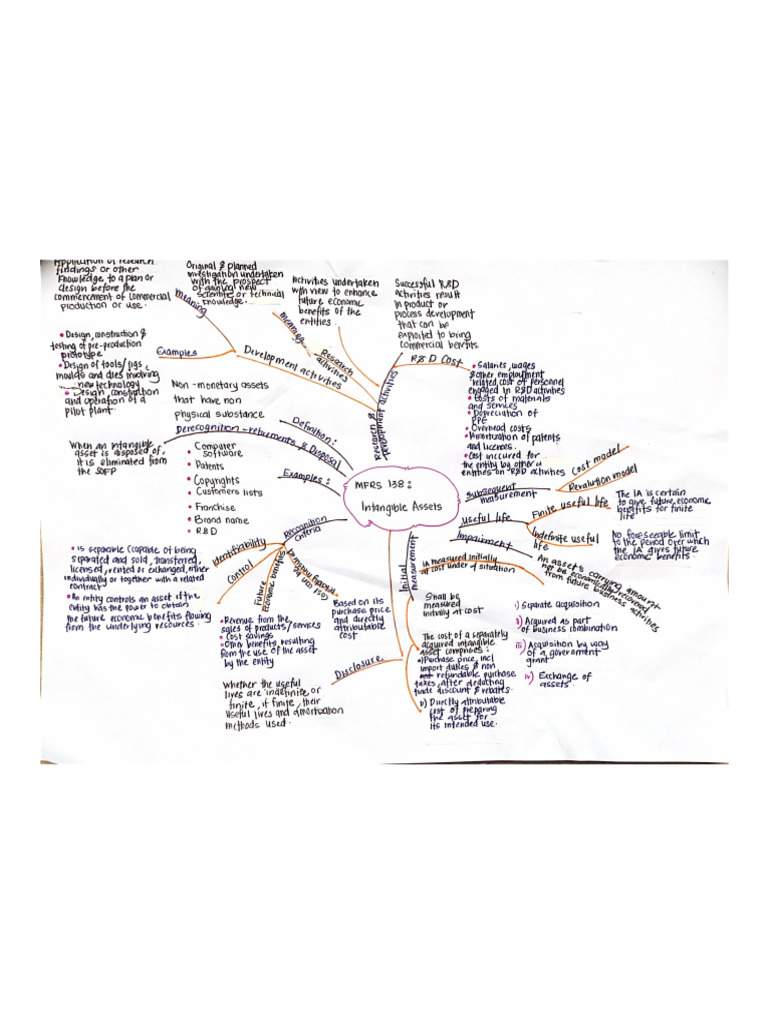 Application of research
findings or other
knowledge to a plan or
design before the
commencement of commercial
production or use.
meaning
Original & planned
investigation undertaken
with the prospect
of gaining new
scientific or technical
knowledge.
meaning
Activities undertaken
with view to enhance
future economic
benefits of the
entities.
Successful R&D
activities result
in product or
process development
that can be
exploited to bring
commercial benefits.
R&D Cost
• Salaries, wages
& other employment
related cost of personnel
engaged in R&D activities
• Costs of materials
and services
• Depreciation of
PPE
• Overhead costs
• Amortization of patents
and licences.
• Cost inccured for
the entity by other
entities on R&D activities
Research
activities
Development activities
Research &
development activities
Examples
• Design, construction &
testing of pre-production
prototype
• Design of tools/jigs,
moulds and dies involving
new technology
• Design, construction
and operation of a
pilot plant
Non-monetary assets
that have non
physical substance
Definition:
Derecognition - retirements & Disposal
When an intangible
asset is disposed of,
it is eliminated from
the SOFP
• Computer
software
• Patents
• Copyrights
• Customers lists
• Franchise
• Brand name
• R&D
Examples:
MFRS 138:
Intangible Assets
Subsequent
measurement
Cost model
Revalution model
Useful life
Finite useful life
The IA is certain
to give future economic
benefits for finite
life
Indefinite useful
life
No foreseeable limit
to the period over which
the IA gives future
economic benefits.
Impairment
An asset's carrying amount
not be economically recovered
from future business activities
Recognition
criteria
Identifiability
• is separable (capable of being
separated and sold, transferred,
licensed, rented or exchanged, either
individually or together with a related
contract
Control
• An entity controls an asset if the
entity has the power to obtain
the future economic benefits flowing
from the underlying resources.
Future
economic benefits
• Revenue from the
sales of products/services
• Cost savings
• Other benefits, resulting
from the use of the asset
by the entity
Cost can be
reliably measured
Based on its
purchase price
and directly
attributable
cost
Disclosure
Whether the useful
lives are indefinite or
finite, if finite, their
useful lives and amortisation
methods used.
Initial
measurement
IA measured initially
at cost under 4 situation
i) Separate acquisition
ii) Acquired as part
of business combination
iii) Acquisition by way
of a government
grant
iv) Exchange of
assets
Shall be
measured
initially at cost
The cost of a separately
acquired intangible
asset comprises:
a) Purchase price, incl
import duties & non
refundable purchase
taxes, after deducting
trade discount & rebates.
b) Directly attributable
cost of preparing
the asset for
its intended use.